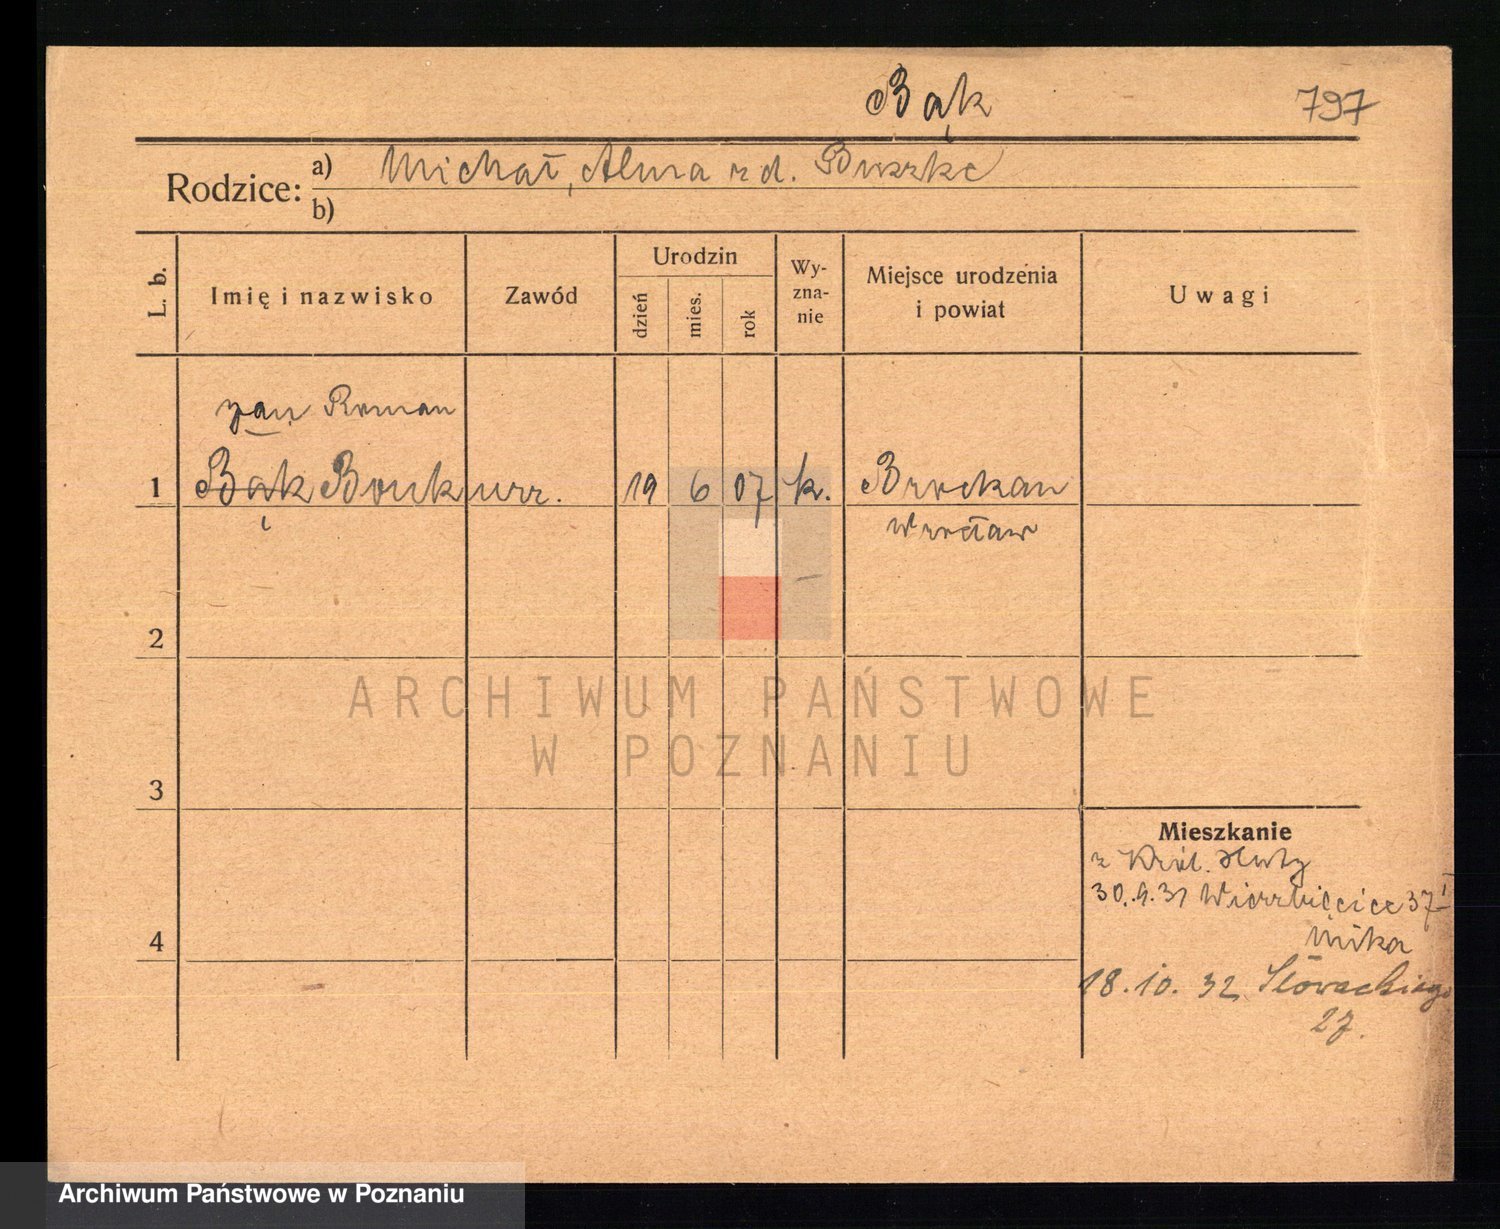 Bąk
797
Rodzice: a) Michał, Alma zd. Buszke
b)
L. b.
Imię i nazwisko
Zawód
Urodzin
dzień
mies.
rok
Wy-
zna-
nie
Miejsce urodzenia
i powiat
Uwagi
Jan Roman
1 Bąk urz. 19 6 07 k. Brockau
Wrocław
2
3
4
ARCHIWUM PAŃSTWOWE
W POZNANIU
Mieszkanie
z Król. Huty
30.9.31 Wierzbięcice 37 I
Mika
18.10.32 Słowackiego
27.
Archiwum Państwowe w Poznaniu